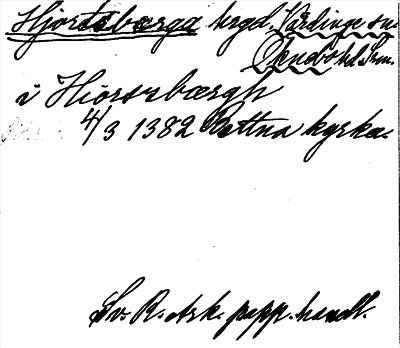 Hjortsbærga hrgd. Vårdinge sn.
Öknebo hd Srm.
i Hiorsbærgh
4/3 1382 Rettna kyrka.
Sv. R. Ark. papp. handl.